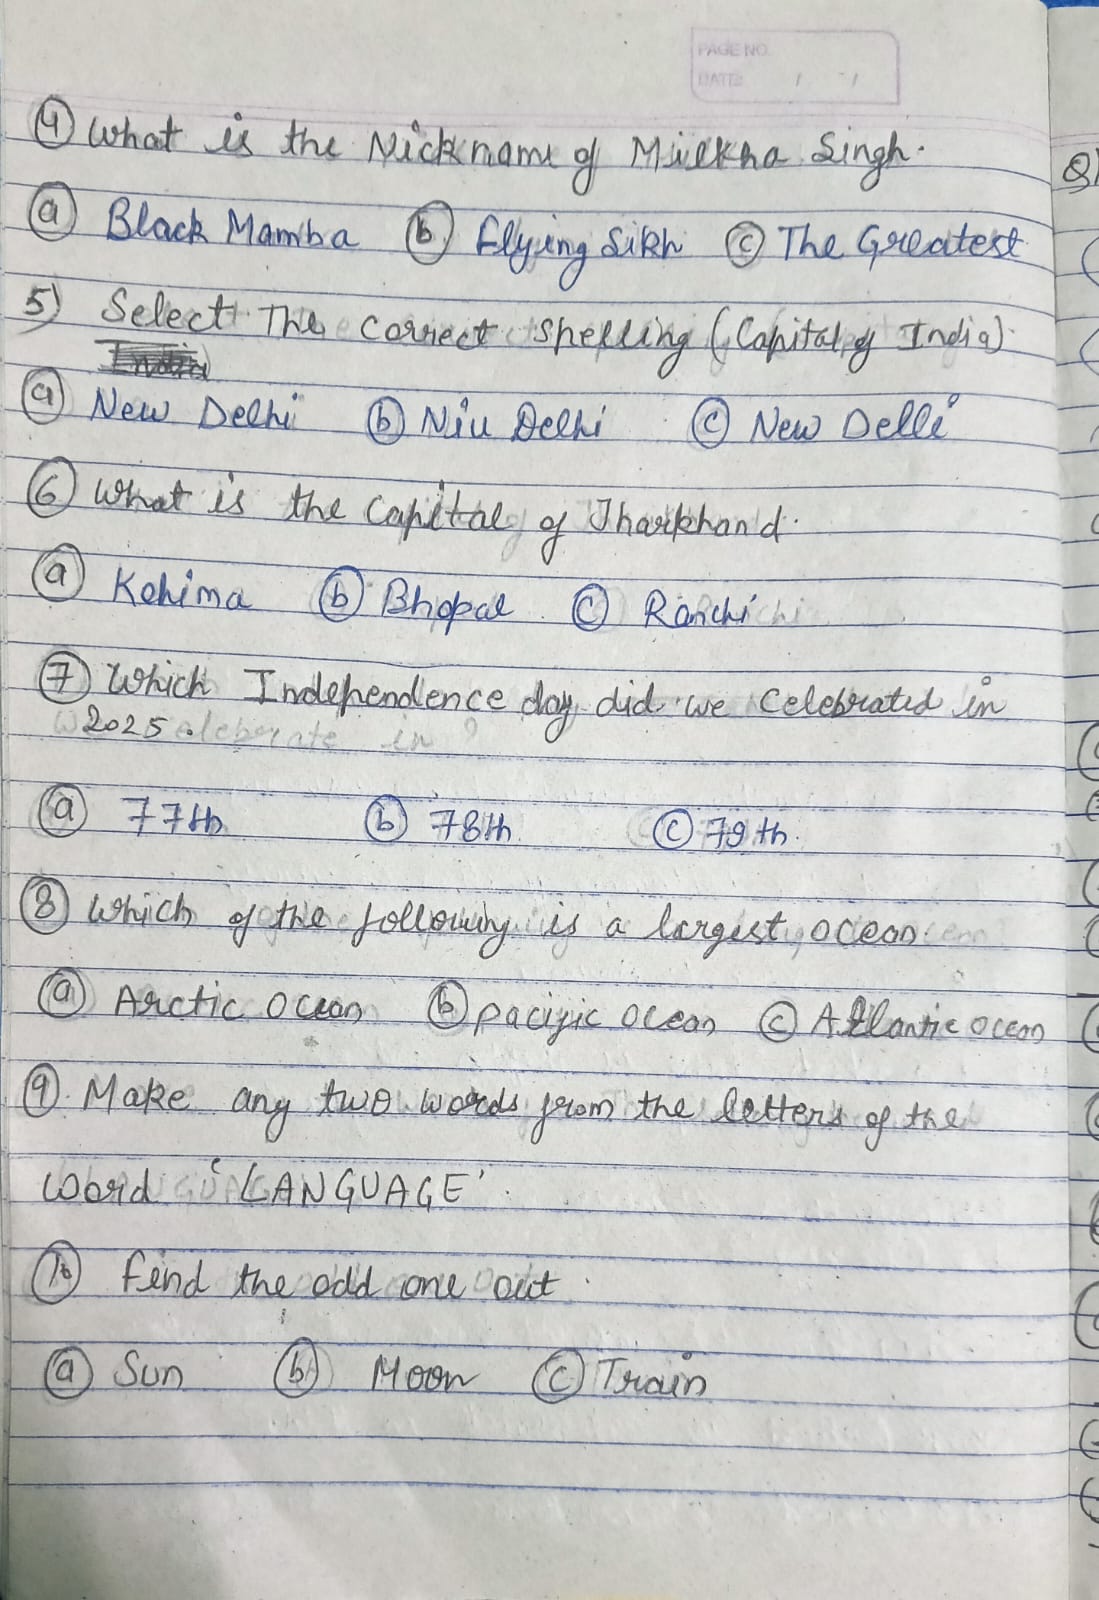 PAGE NO.
DATE: / /
④ What is the Nickname of Milkha Singh.
ⓐ Black Mamba ⓑ Flying Sikh ⓒ The Greatest
5) Select The correct Spelling (Capital of India)
ⓐ New Delhi ⓑ Niu Delhi ⓒ New Delli
⑥ What is the Capital of Jharkhand.
ⓐ Kohima ⓑ Bhopal ⓒ Ranchi
⑦ Which Independence day did we Celebrated in
2025.
ⓐ 77th ⓑ 78th ⓒ 79th.
⑧ Which of the following is a largest ocean
ⓐ Arctic ocean ⓑ pacific ocean ⓒ Atlantic ocean
⑨ Make any two words from the letters of the
word 'LANGUAGE'.
⑩ find the odd one out.
ⓐ Sun ⓑ Moon ⓒ Train